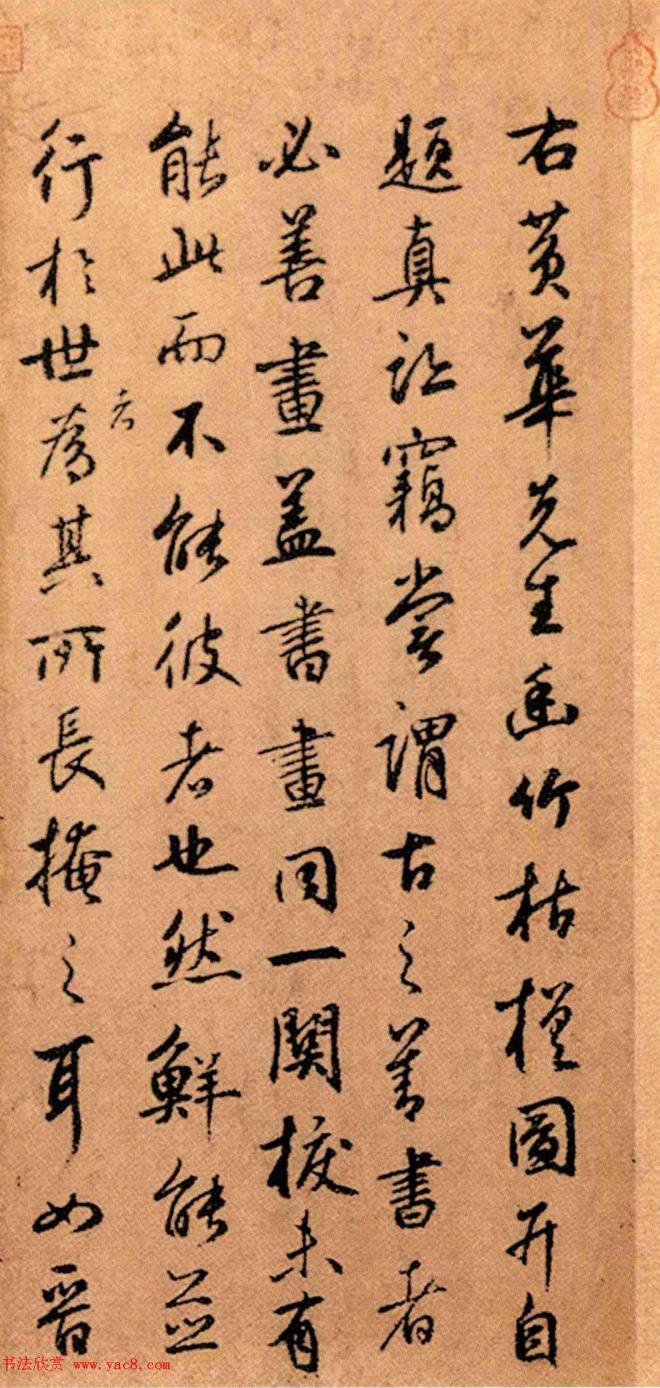 右黄華先生幽竹枯槎圖并自
題真迹竊嘗謂古之善書者
必善畫盖書畫同一關捩未有
能此而不能彼者也然鮮能並
行於世者為其所長掩之耳如晉
书法欣赏 www.yac8.com